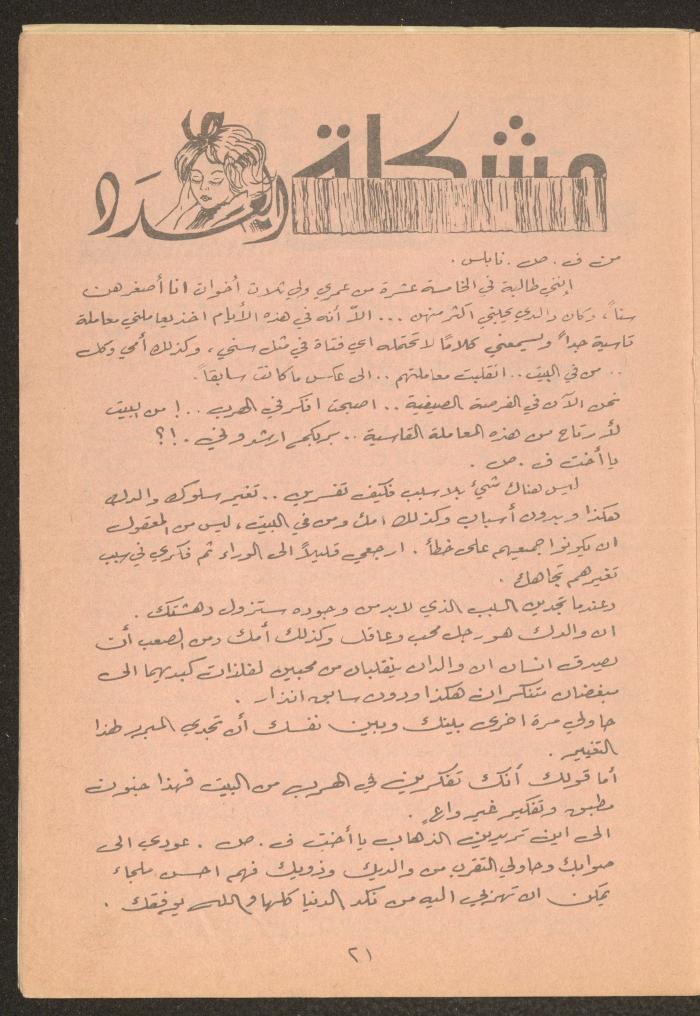 مشكلة العدد
من ف . ص . نابلس .
إنني طالبة في الخامسة عشرة من عمري ولي ثلاث أخوات انا أصغرهن
سناً ، وكان والدي يحبني اكثر منهن ... الاّ أنه في هذه الأيام اخذ يعاملني معاملة
قاسية جداً ويسمعني كلاماً لا تحتمله اي فتاة في مثل سني ، وكذلك أمي وكل
.. من في البيت .. انقلبت معاملتهم .. الى عكس ما كانت سابقاً .
نحن الآن في الفرصة الصيفية .. اصبحت افكر في الهرب .. ! من البيت
لأرتاح من هذه المعاملة القاسية .. بربكم ارشدوني . !؟
يا أخت ف . ص .
ليس هناك شيء بلا سبب فكيف تفسرين .. تغير سلوك والدك
هكذا وبدون أسباب وكذلك امك ومن في البيت ، ليس من المعقول
ان يكونوا جميعهم على خطأ . ارجعي قليلاً الى الوراء ثم فكري في سبب
تغيرهم تجاهك .
وعندما تجدين السبب الذي لا بد من وجوده ستزول دهشتك .
ان والدك هو رجل محب وعاقل وكذلك أمك ومن الصعب أن
يصدق انسان ان والدان ينقلبان من محبين لفلذات كبديهما الى
مبغضان متنكران هكذا ودون سابق انذار .
حاولي مرة اخرى بينك وبين نفسك أن تجدي المبرر لهذا
التغيير .
أما قولك أنك تفكرين في الهرب من البيت فهذا جنون
مطبق وتفكير غير واعٍ .
الى اين تريدين الذهاب يا أخت ف . ص . عودي الى
صوابك وحاولي التقرب من والديك وذويك فهم احسن ملجاء
يمكن ان تهربي اليه من نكد الدنيا كلها والله يوفقك .
٢١